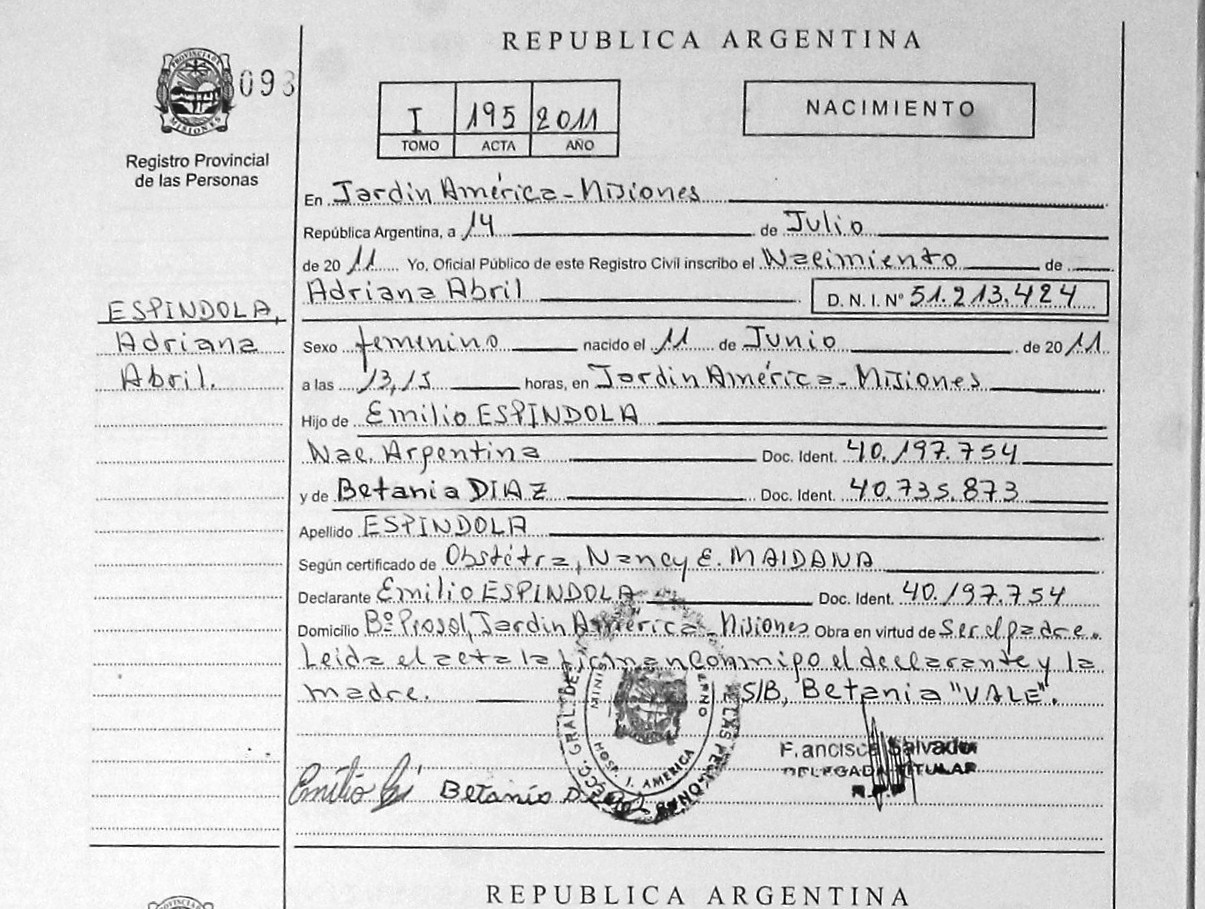 REPUBLICA ARGENTINA
PROVINCIA DE MISIONES
093
Registro Provincial
de las Personas
I 195 2011
TOMO ACTA AÑO
NACIMIENTO
En Jardín América - Misiones
República Argentina, a 14 de Julio
de 20 11 Yo, Oficial Público de este Registro Civil inscribo el Nacimiento de
Adriana Abril D. N. I. Nº 51.213.424
ESPINDOLA,
Adriana
Abril.
Sexo femenino nacido el 11 de Junio de 20 11
a las 13,15 horas, en Jardín América - Misiones
Hijo de Emilio ESPINDOLA
Nac. Argentina Doc. Ident. 40.197.754
y de Betania DIAZ Doc. Ident. 40.735.873
Apellido ESPINDOLA
Según certificado de Obstétra, Nancy E. MAIDANA
Declarante Emilio ESPINDOLA Doc. Ident. 40.197.754
Domicilio Bº Prosol, Jardín América - Misiones Obra en virtud de Ser el padre.
Leida el acta la firman conmigo el declarante y la
madre. S/B, Betania "VALE".
HOSP. J. AMERICA
Francisco Salvador
DELEGADA TITULAR
R.P.P
Emilio
Betania
REPUBLICA ARGENTINA